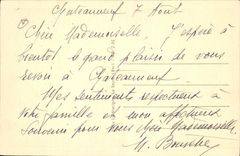 Chateauneuf 7 Aout
Chère Mademoiselle, J'espère à
bientôt le grand plaisir de vous
revoir à Chateauneuf
Mes sentiments respectueux à
votre famille et mon affectueux
Souvenir pour vous chère Mademoiselle
M.